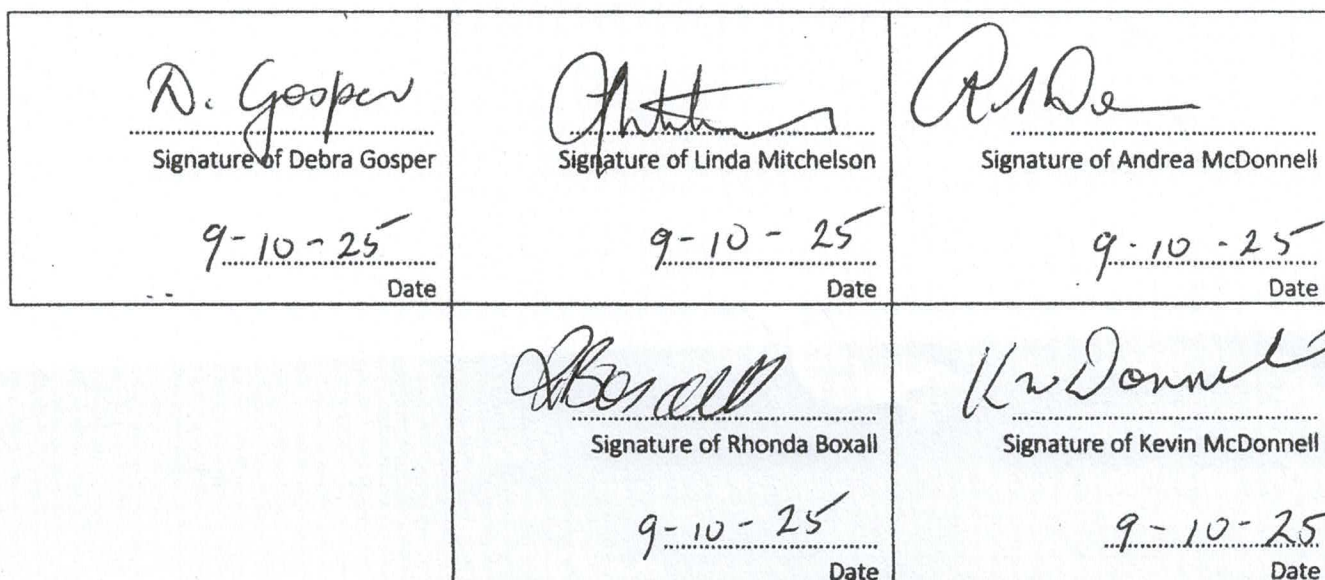 D. Gosper
Signature of Debra Gosper
9-10-25
Date
Signature of Linda Mitchelson
9-10-25
Date
Signature of Andrea McDonnell
9-10-25
Date
Signature of Rhonda Boxall
9-10-25
Date
Signature of Kevin McDonnell
9-10-25
Date